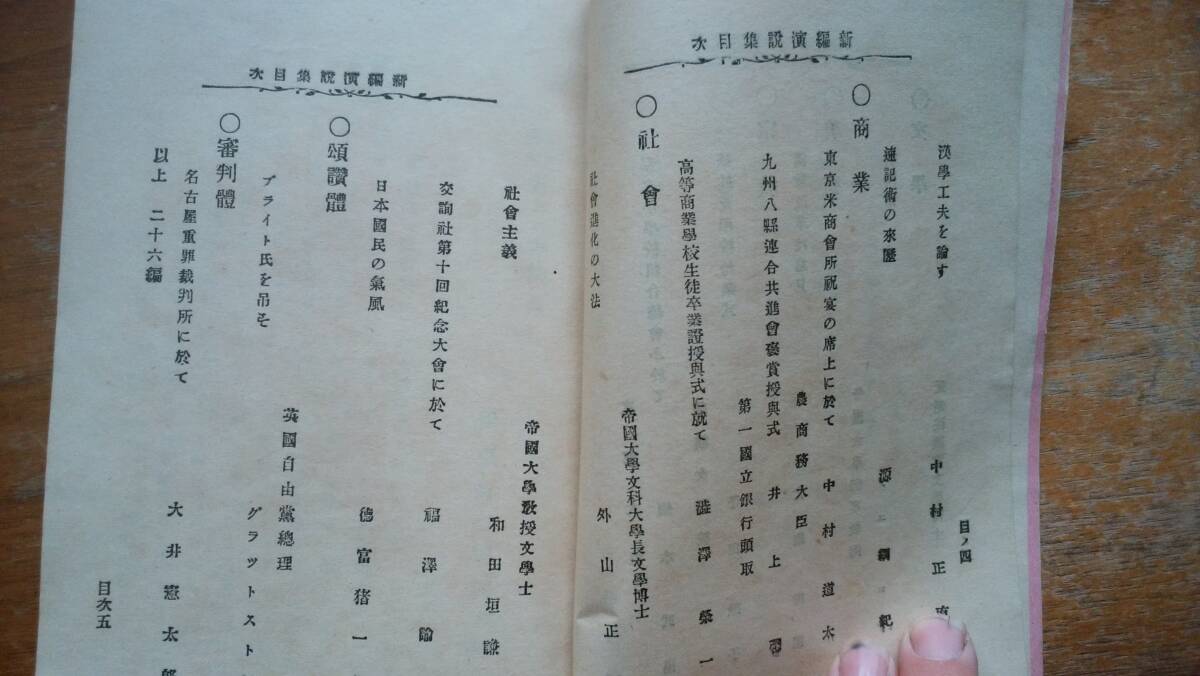 新編演説集目次
目ノ四
漢學工夫を論す
中村正直
速記術の來歷
源綱紀
〇商業
東京米商會所祝宴の席上に於て
中村道太
農商務大臣
九州八縣連合共進會褒賞授與式
井上
第一國立銀行頭取
高等商業學校生徒卒業證授與式に就て
澁澤榮一
〇社會
帝國大學文科大學長文學博士
社會進化の大法
外山正
新編演説集目次
帝國大學敎授文學士
社會主義
和田垣謙
交詢社第十回紀念大會に於て
福澤諭
日本國民の氣風
德富猪一
〇頌讚體
英國自由黨總理
ブライト氏を吊そ
グラットスト
〇審判體
名古屋重罪裁判所に於て
大井憲太郎
以上 二十六編
目次五